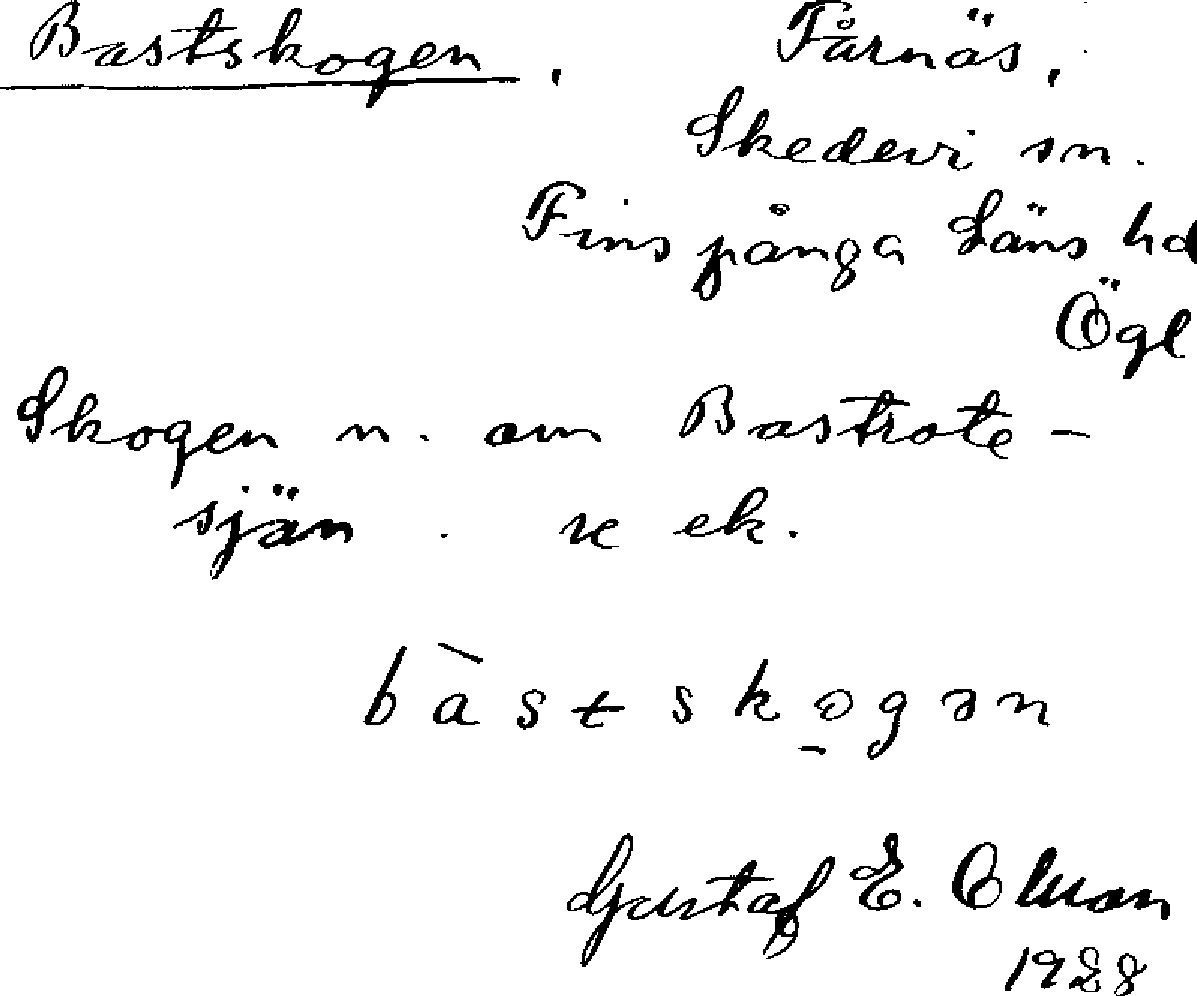 Bastskogen, Fårnäs,
Skedevi sn.
Finspånga Läns hd
Ögl
Skogen n. om Bastrote-
sjän. se ek.
bàstskogən
Gustaf E. Olsson
1928